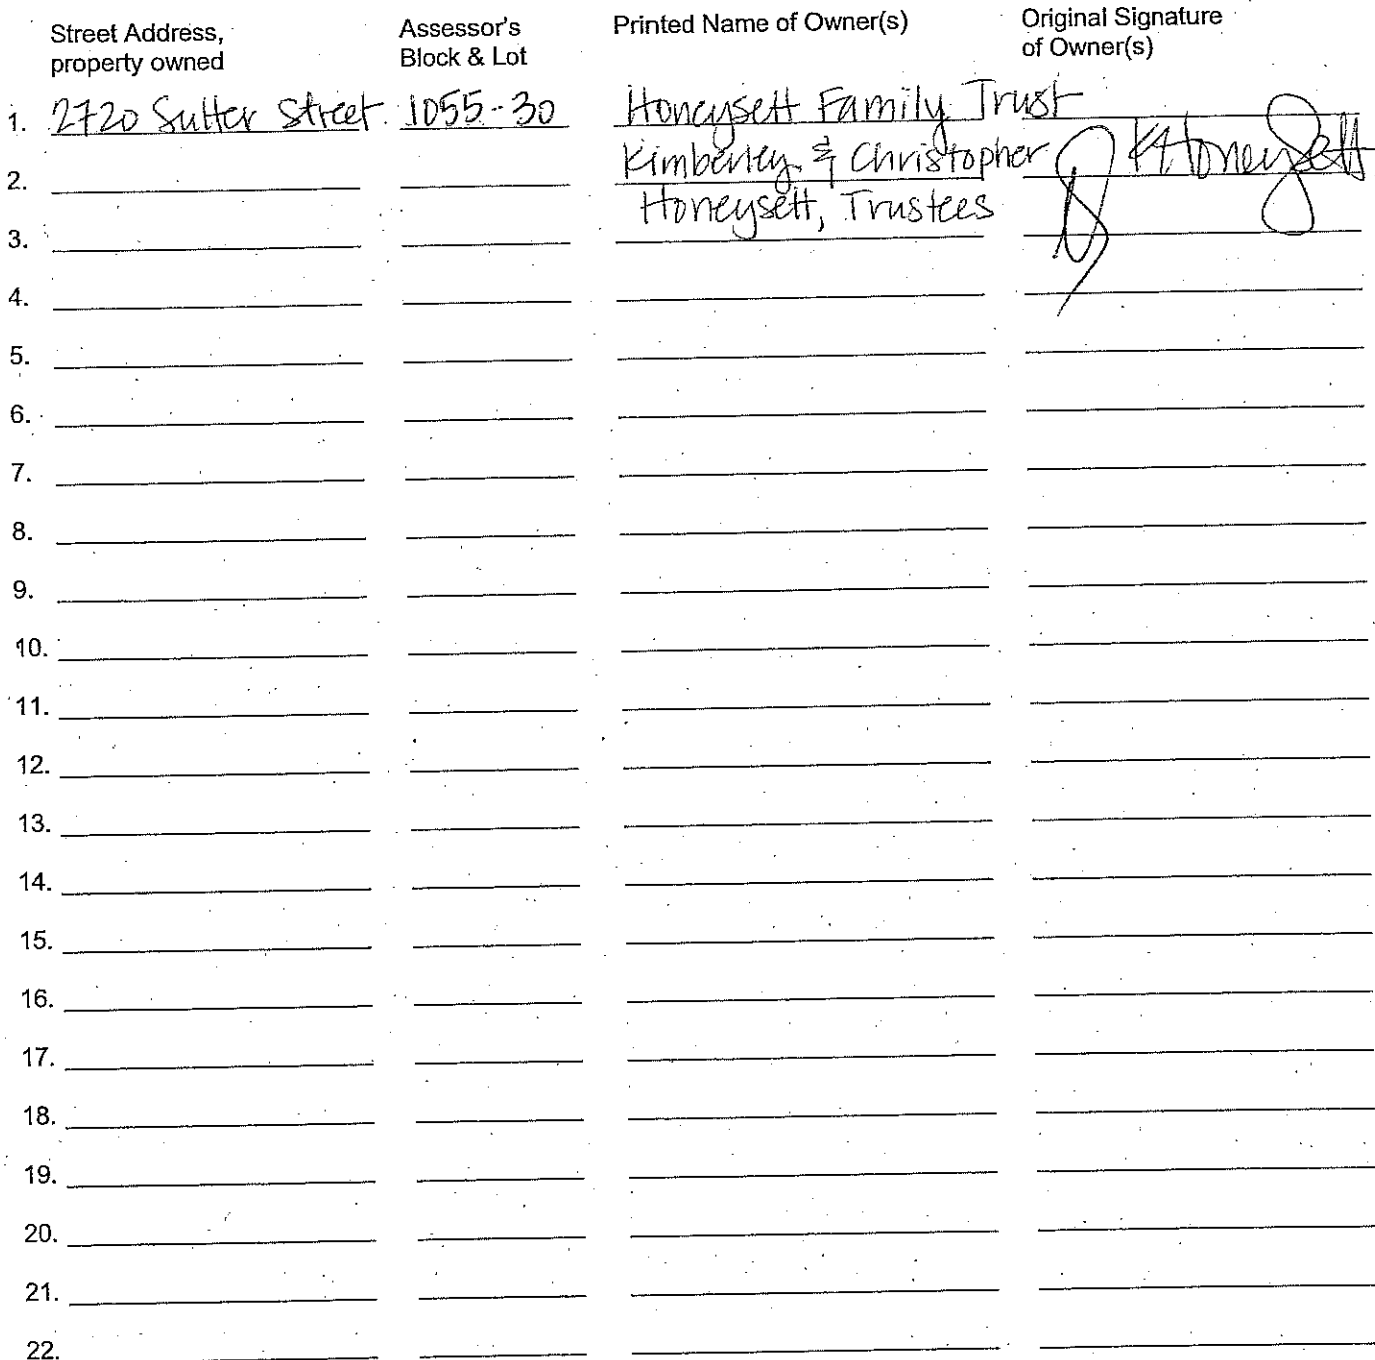 Street Address,
property owned
Assessor's
Block & Lot
Printed Name of Owner(s)
Original Signature
of Owner(s)
1. 2720 Sutter Street 1055-30 Honeysett Family Trust
Kimberley & Christopher KHoneysett
2.
Honeysett, Trustees
3.
4.
5.
6.
7.
8.
9.
10.
11.
12.
13.
14.
15.
16.
17.
18.
19.
20.
21.
22.